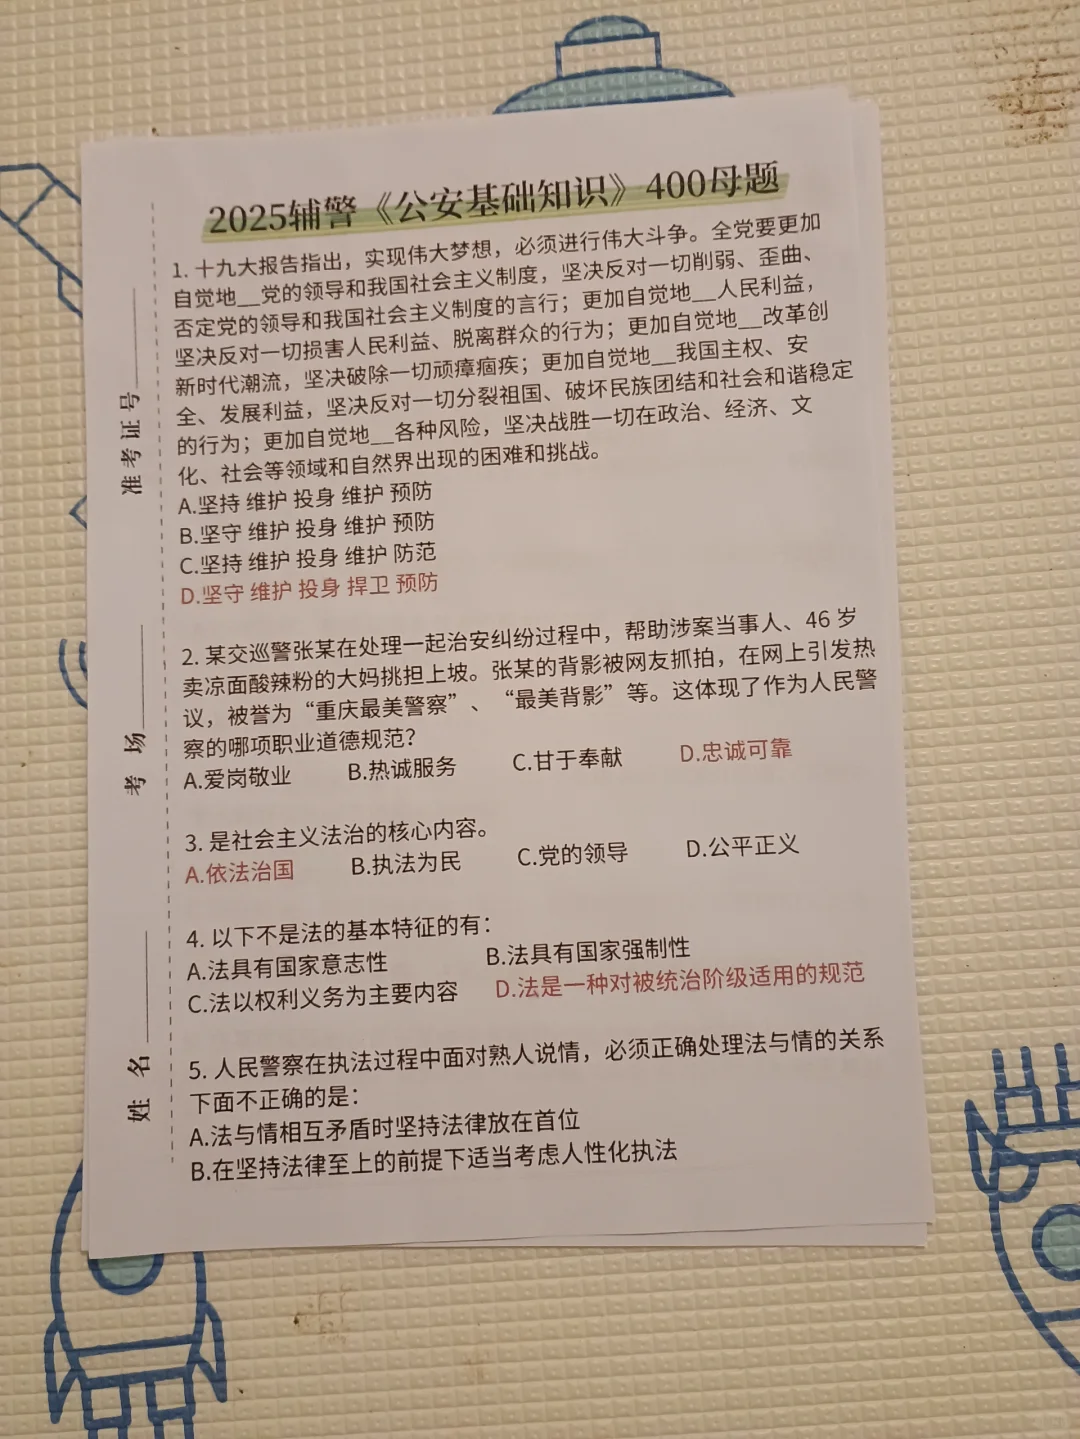 2025辅警《公安基础知识》400母题
1. 十九大报告指出，实现伟大梦想，必须进行伟大斗争。全党要更加
自觉地__党的领导和我国社会主义制度，坚决反对一切削弱、歪曲、
否定党的领导和我国社会主义制度的言行；更加自觉地__人民利益，
坚决反对一切损害人民利益、脱离群众的行为；更加自觉地__改革创
新时代潮流，坚决破除一切顽瘴痼疾；更加自觉地__我国主权、安
全、发展利益，坚决反对一切分裂祖国、破坏民族团结和社会和谐稳定
的行为；更加自觉地__各种风险，坚决战胜一切在政治、经济、文
化、社会等领域和自然界出现的困难和挑战。
A.坚持 维护 投身 维护 预防
B.坚守 维护 投身 维护 预防
C.坚持 维护 投身 维护 防范
D.坚守 维护 投身 捍卫 预防
2. 某交巡警张某在处理一起治安纠纷过程中，帮助涉案当事人、46 岁
卖凉面酸辣粉的大妈挑担上坡。张某的背影被网友抓拍，在网上引发热
议，被誉为“重庆最美警察”、“最美背影”等。这体现了作为人民警
察的哪项职业道德规范？
A.爱岗敬业 B.热诚服务 C.甘于奉献 D.忠诚可靠
3. 是社会主义法治的核心内容。
A.依法治国 B.执法为民 C.党的领导 D.公平正义
4. 以下不是法的基本特征的有：
A.法具有国家意志性 B.法具有国家强制性
C.法以权利义务为主要内容 D.法是一种对被统治阶级适用的规范
5. 人民警察在执法过程中面对熟人说情，必须正确处理法与情的关系
下面不正确的是：
A.法与情相互矛盾时坚持法律放在首位
B.在坚持法律至上的前提下适当考虑人性化执法
准考证号
考 场
姓 名